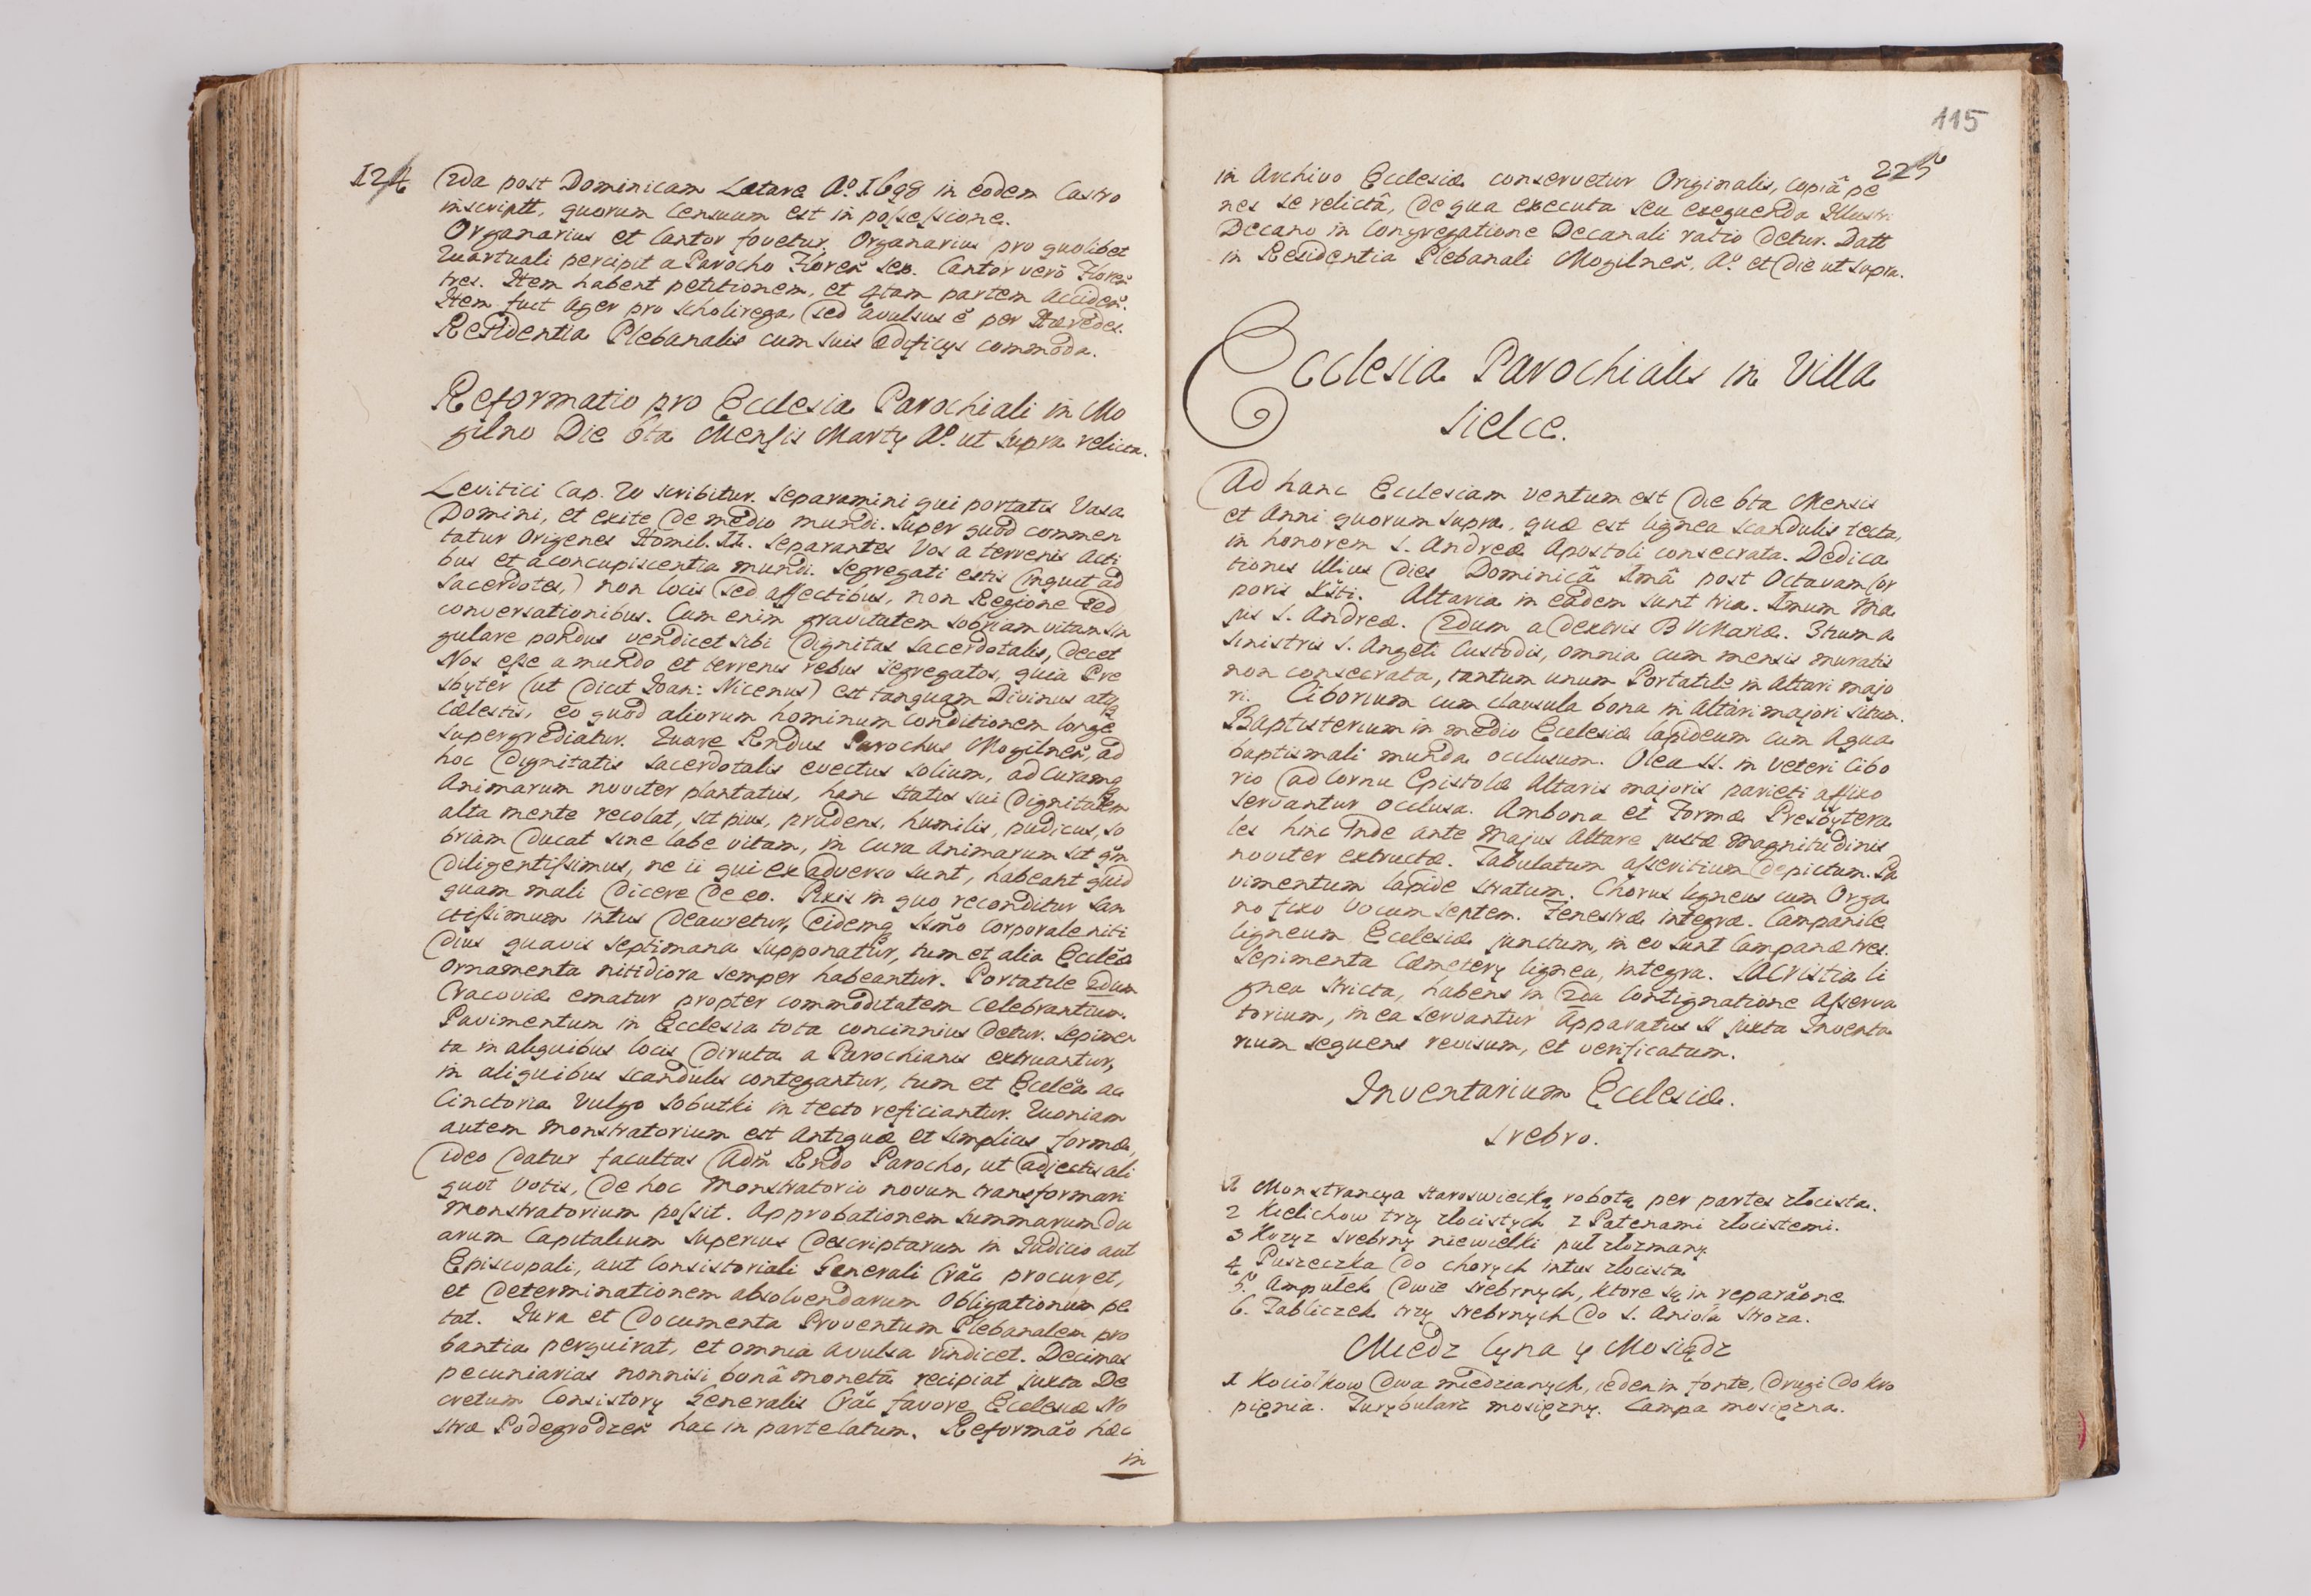 124
2da post Dominicam Lætare Aº 1698 in eodem Castro
inscriptt, quorum Censuum est in possessione.
Organarius et Cantor fovetur. Organarius pro quolibet
Quartuali percipit a Parocho Floreñ sex. Cantor verò Floreñ
tres. Item habent petitionem, et 4tam partem Accideñ.
Item fuit Ager pro Scholirega, sed avulsus ē per Hæredes.
Residentia Plebanalis cum suis Ædificys commoda.
Reformatio pro Ecclesia Parochiali in Mo
gilno Die 6ta Mensis Marty Aº ut supra relicta.
Levitici Cap. 20 scribitur. Separamini qui portatis Vasa
Domini, et exite de medio mundi. Super quod commen
tatur Origenes Homil. 11. Separantes Vos a terrenis Acti
bus et a concupiscentia mundi. Segregati estis (inquit ad
Sacerdotes,) non locis sed affectibus, non Regione sed
conversationibus. Cum enim gravitatem sobriam vitam sin
gulare pondus vendicet sibi dignitas Sacerdotalis, decet
Nos esse a mundo et terrenis rebus segregatos, quia Pre
sbyter (ut dicit Joan: Nicenus) est tanquam Divinus atq
Cœlestis, eo quod aliorum hominum conditionem longe
supergrediatur. Quare Rndus Parochus Mogilneñ, ad
hoc dignitatis Sacerdotalis evectus solium, ad curamq
Animarum noviter plantatus, hanc status sui dignitatem
alta mente recolat, sit pius, prudens, humilis, pudicus, so
briam ducat sine labe vitam, in cura Animarum sit qm̃
diligentissimus, ne ii qui ex adverso sunt, habeant quid
quam mali dicere de eo. Pixis in quo reconditur San
ctissimum intus deauretur, eidemq Ssm̃o Corporale niti
dius quavis septimana supponatur, tum et alia Ecclæ
Ornamenta nitidiora semper habeantur. Portatile 2dum
Cracoviæ ematur propter commoditatem Celebrantium.
Pavimentum in Ecclesia tota concinnius detur. Sepimen
ta in aliquibus locis diruta a Parochianis extruantur,
in aliquibus scandulis contegantur, tum et Ecclẽa ac
Cinctoria Vulgo Sobutki in tecto reficiantur. Quoniam
autem Monstratorium est Antiquæ et simplicis formæ,
ideo datur facultas Adm̃ Rndo Parocho, ut adjectis ali
quot Votis, de hoc Monstratorio novum transformari
Monstratorium possit. Approbationem Summarum du
arum Capitalium superius descriptarum in Judicio aut
Episcopali, aut Consistoriali Generali Crač procuret,
et determinationem absolvendarum Obligationum pe
tat. Jura et documenta Proventum Plebanalem pro
bantia perquirat, et omnia avulsa vindicet. Decimas
pecuniarias nonnisi bonâ monetâ recipiat juxta De
cretum Consistory Generalis Crač favore Ecclesiæ No
stræ Podegrodzeñ hac in parte latum. Reformaõ hæc
in
115
225
in Archivo Ecclesiæ conservetur Originalis, copiâ pe
nes se relictâ, de qua executa seu exequenda Illustri
Decano in Congregatione Decanali ratio detur. Datt
in Residentia Plebanali Mogilneñ, Aº et die ut supra.
Ecclesia Parochialis in Villa
Sielce.
Ad hanc Ecclesiam ventum est die 6ta Mensis
et Anni quorum supra, quæ est lignea scandulis tecta,
in honorem S. Andreæ Apostoli consecrata. Dedica
tionis illius dies Dominicâ 1mâ post Octavam Cor
poris Xsti. Altaria in eadem sunt tria. 1mum Ma
jus S. Andreæ. 2dum a dextris B V Mariæ. 3tium a
sinistris S. Angeli Custodis, omnia cum mensis muratis
non consecrata, tantum unum Portatile in Altari majo
ri. Ciborium cum clausula bona in Altari majori situm.
Baptisterium in medio Ecclesiæ lapideum cum Aqua
baptismali munda occlusum. Olea SS. in veteri Cibo
rio ad Cornu Epistolæ Altaris majoris parieti affixo
servantur occlusa. Ambona et Formæ Presbytera
les hinc inde ante Majus Altare justæ magnitudinis
noviter extructæ. Tabulatum asseritium depictum. Pa
vimentum lapide stratum. Chorus ligneus cum Orga
no fixo Vocum septem. Fenestræ integræ. Campanile
ligneum Ecclesiæ junctum, in eo sunt Campanæ tres.
Sepimenta Cæmetery lignea, integra. Sacristia li
gnea stricta, habens in 2da Contignatione Asserva
torium, in ea servantur Apparatus SS juxta Inventa
rium sequens revisum, et verificatum.
Inventarium Ecclesiæ.
Srebro.
1 Monstrancya staroswiecką robotą per partes złocista.
2 Kielichow trzy złocistych z Patenami złocistemi.
3 Krzyz srebrny niewielki puł złozmany
4 Puszeczka do chorych intus złocista
5. Ampułek dwie srebrnych, ktore są in reparaõne
6. Tabliczek trzy srebrnych do S. Anioła Stroza.
Miedz Cyna y Mosiądz
1 Kociołkow dwa miedzianych, ieden in fonte, drugi do kro
pięnia. Turybularz mosiężny. Lampa mosiężna.